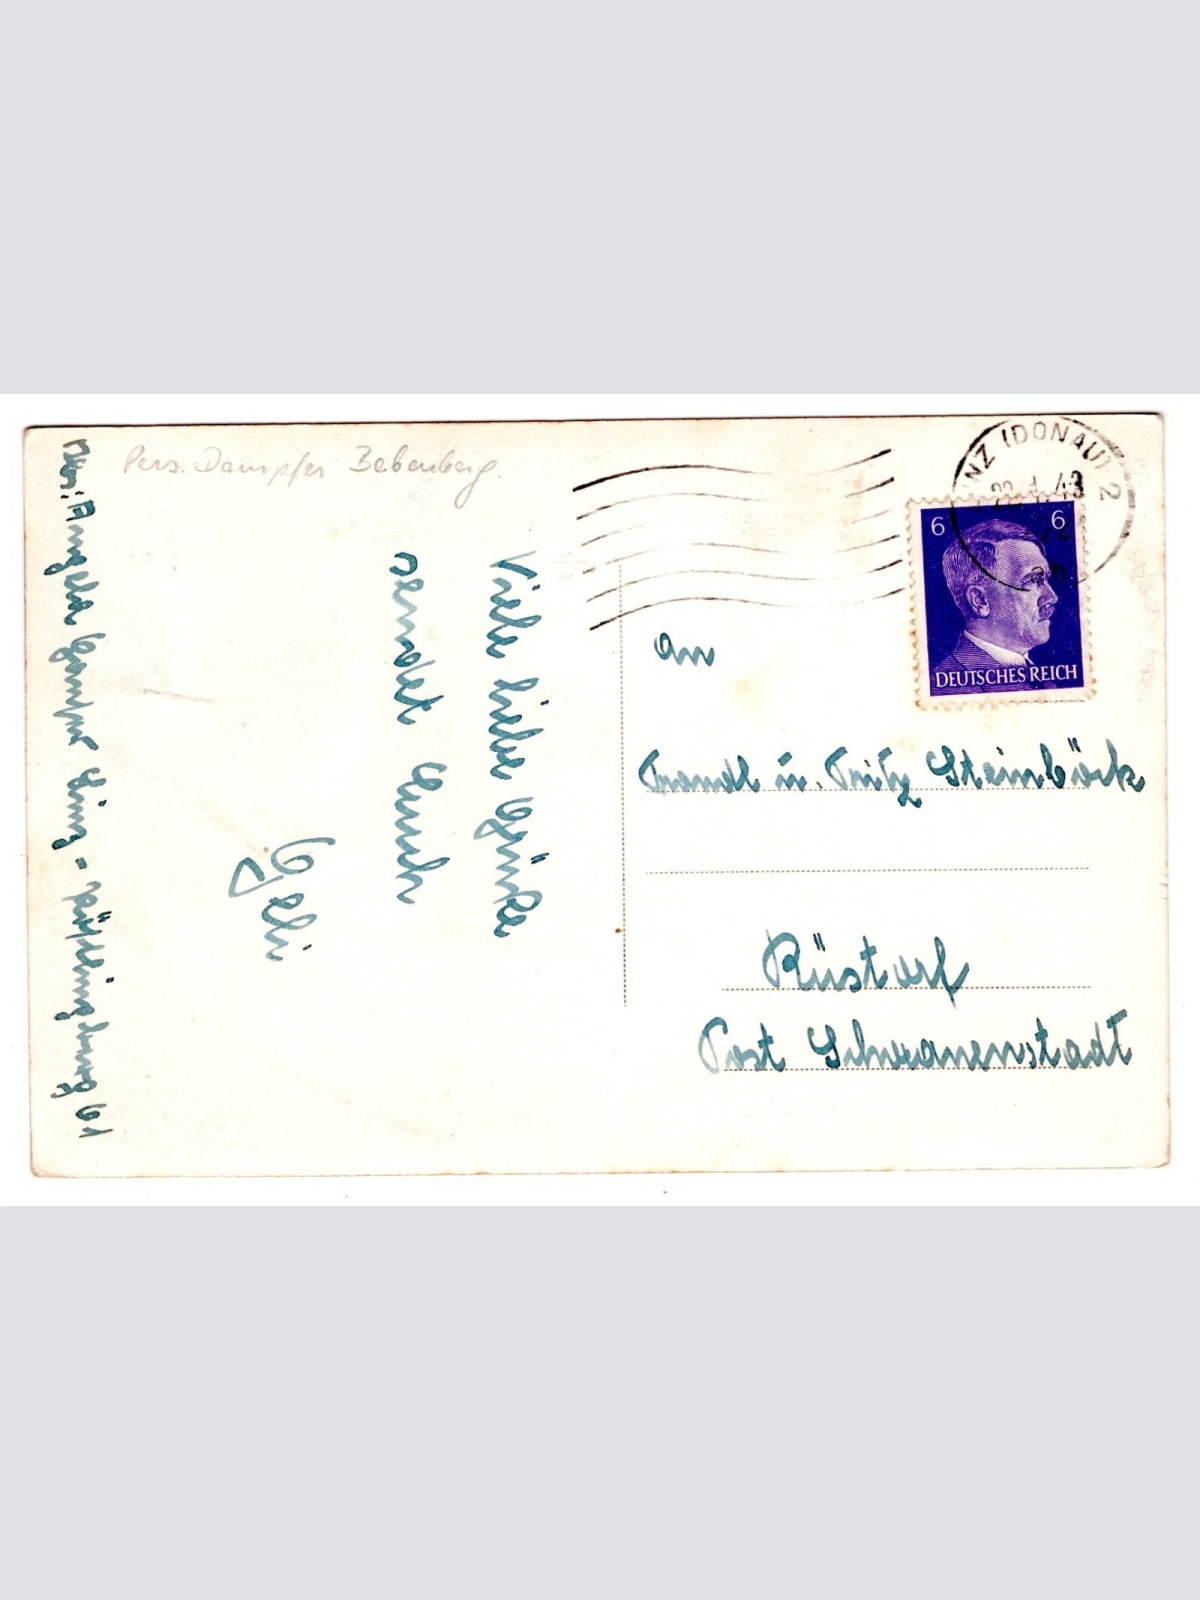 Pers. Dampfer Babenberg.
LINZ (DONAU) 2
43
6 6
DEUTSCHES REICH
An
Trandl u. Fritz Steinböck
Rüstorf
Post Schwanenstadt
Viele liebe Grüße
sendet Euch
Geli
Abs: Angela Linz - 61